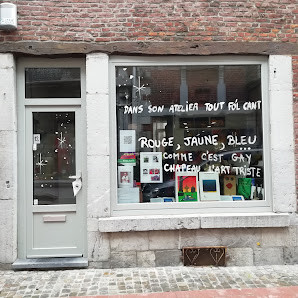 DANS SON ATELIER TOUT POIL CANT
ROUGE, JAUNE, BLEU
COMME C'EST GAY
CHAPEAU L'ARTRISTE